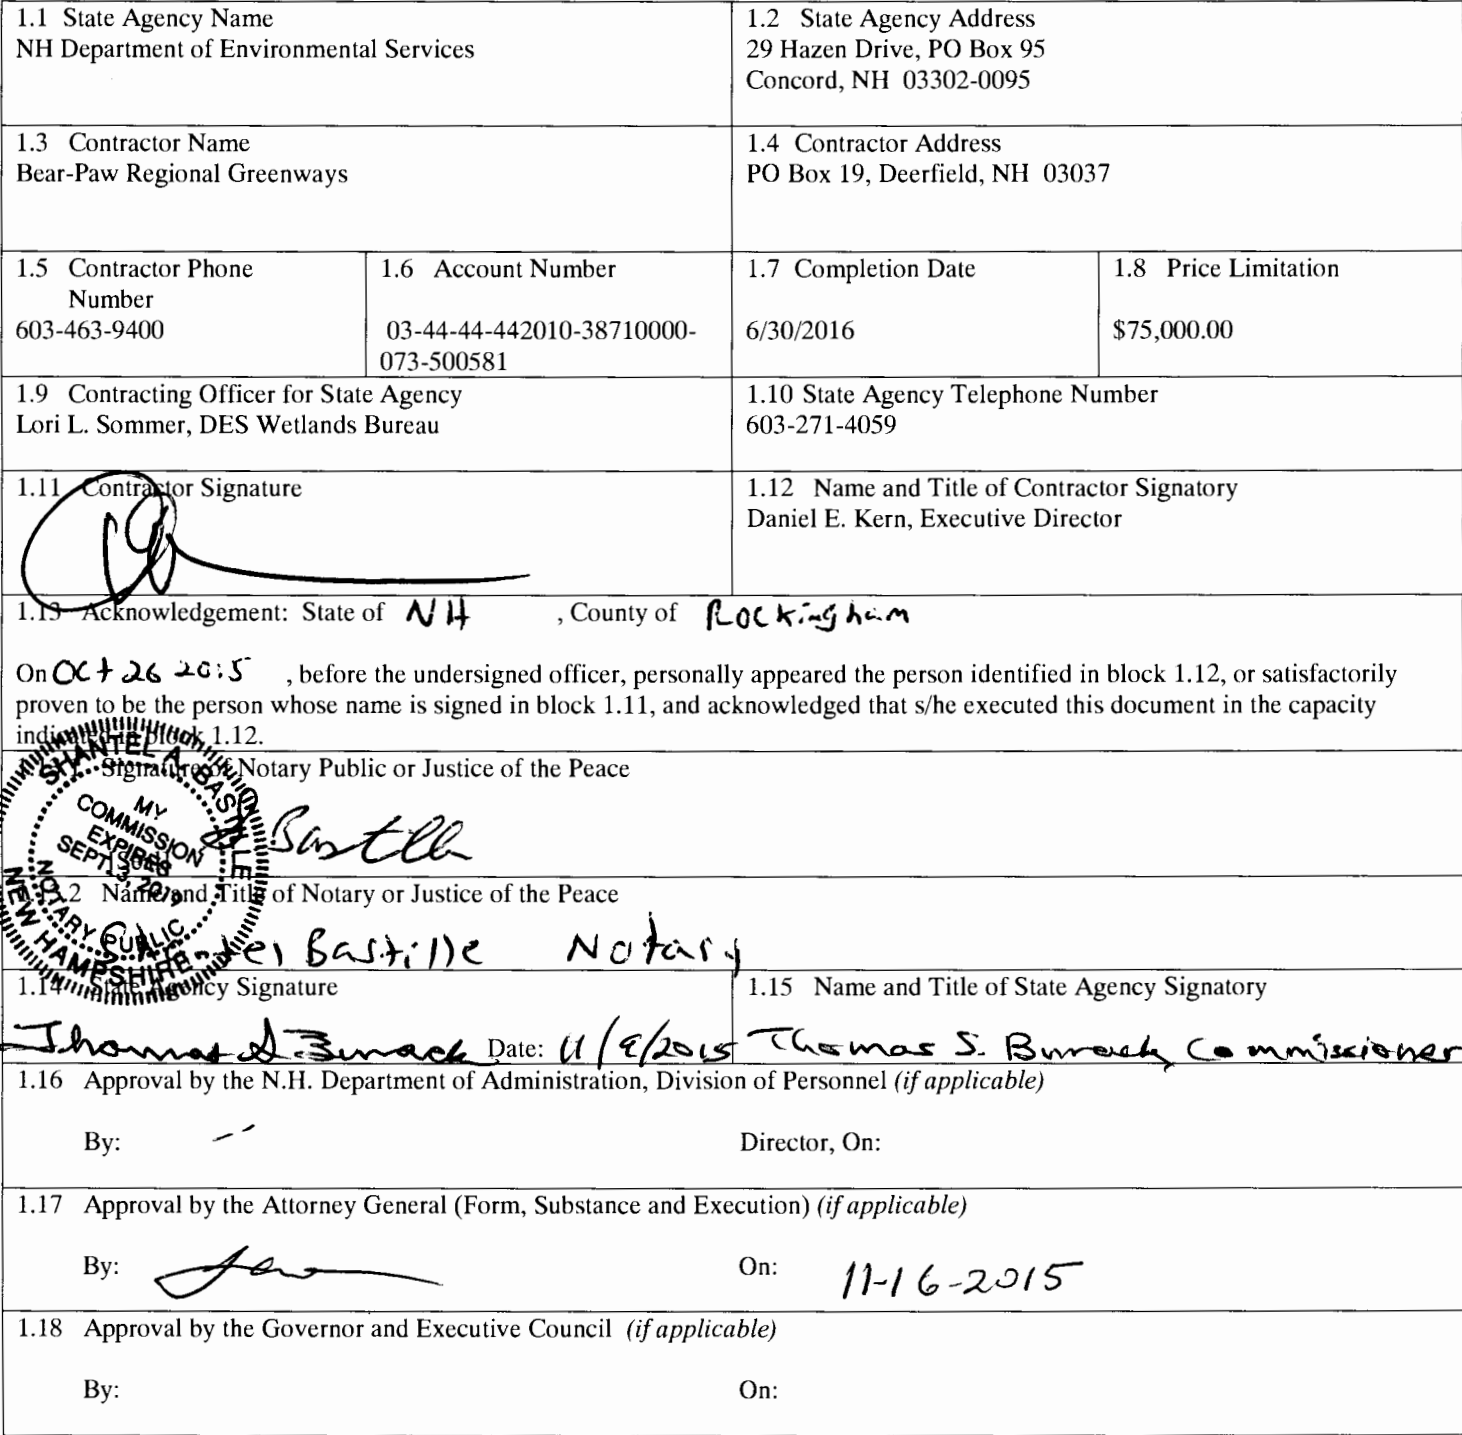 1.1 State Agency Name
NH Department of Environmental Services
1.2 State Agency Address
29 Hazen Drive, PO Box 95
Concord, NH 03302-0095
1.3 Contractor Name
Bear-Paw Regional Greenways
1.4 Contractor Address
PO Box 19, Deerfield, NH 03037
1.5 Contractor Phone
Number
603-463-9400
1.6 Account Number
03-44-44-442010-38710000-
073-500581
1.7 Completion Date
6/30/2016
1.8 Price Limitation
$75,000.00
1.9 Contracting Officer for State Agency
Lori L. Sommer, DES Wetlands Bureau
1.10 State Agency Telephone Number
603-271-4059
1.11 Contractor Signature
1.12 Name and Title of Contractor Signatory
Daniel E. Kern, Executive Director
1.13 Acknowledgement: State of NH , County of Rockingham
On Oct 26 2015 , before the undersigned officer, personally appeared the person identified in block 1.12, or satisfactorily
proven to be the person whose name is signed in block 1.11, and acknowledged that s/he executed this document in the capacity
indicated in block 1.12.
Signature of Notary Public or Justice of the Peace
SHANTEL A. BASTILLE
MY
COMMISSION
EXPIRES
SEPT. 13,
NOTARY PUBLIC
NEW HAMPSHIRE
Bastille
Name and Title of Notary or Justice of the Peace
Shantel Bastille Notary
1.14 State Agency Signature
Thomas S. Burack Date: 11/9/2015
1.15 Name and Title of State Agency Signatory
Thomas S. Burack, Commissioner
1.16 Approval by the N.H. Department of Administration, Division of Personnel (if applicable)
By: Director, On:
1.17 Approval by the Attorney General (Form, Substance and Execution) (if applicable)
By: On: 11-16-2015
1.18 Approval by the Governor and Executive Council (if applicable)
By: On: